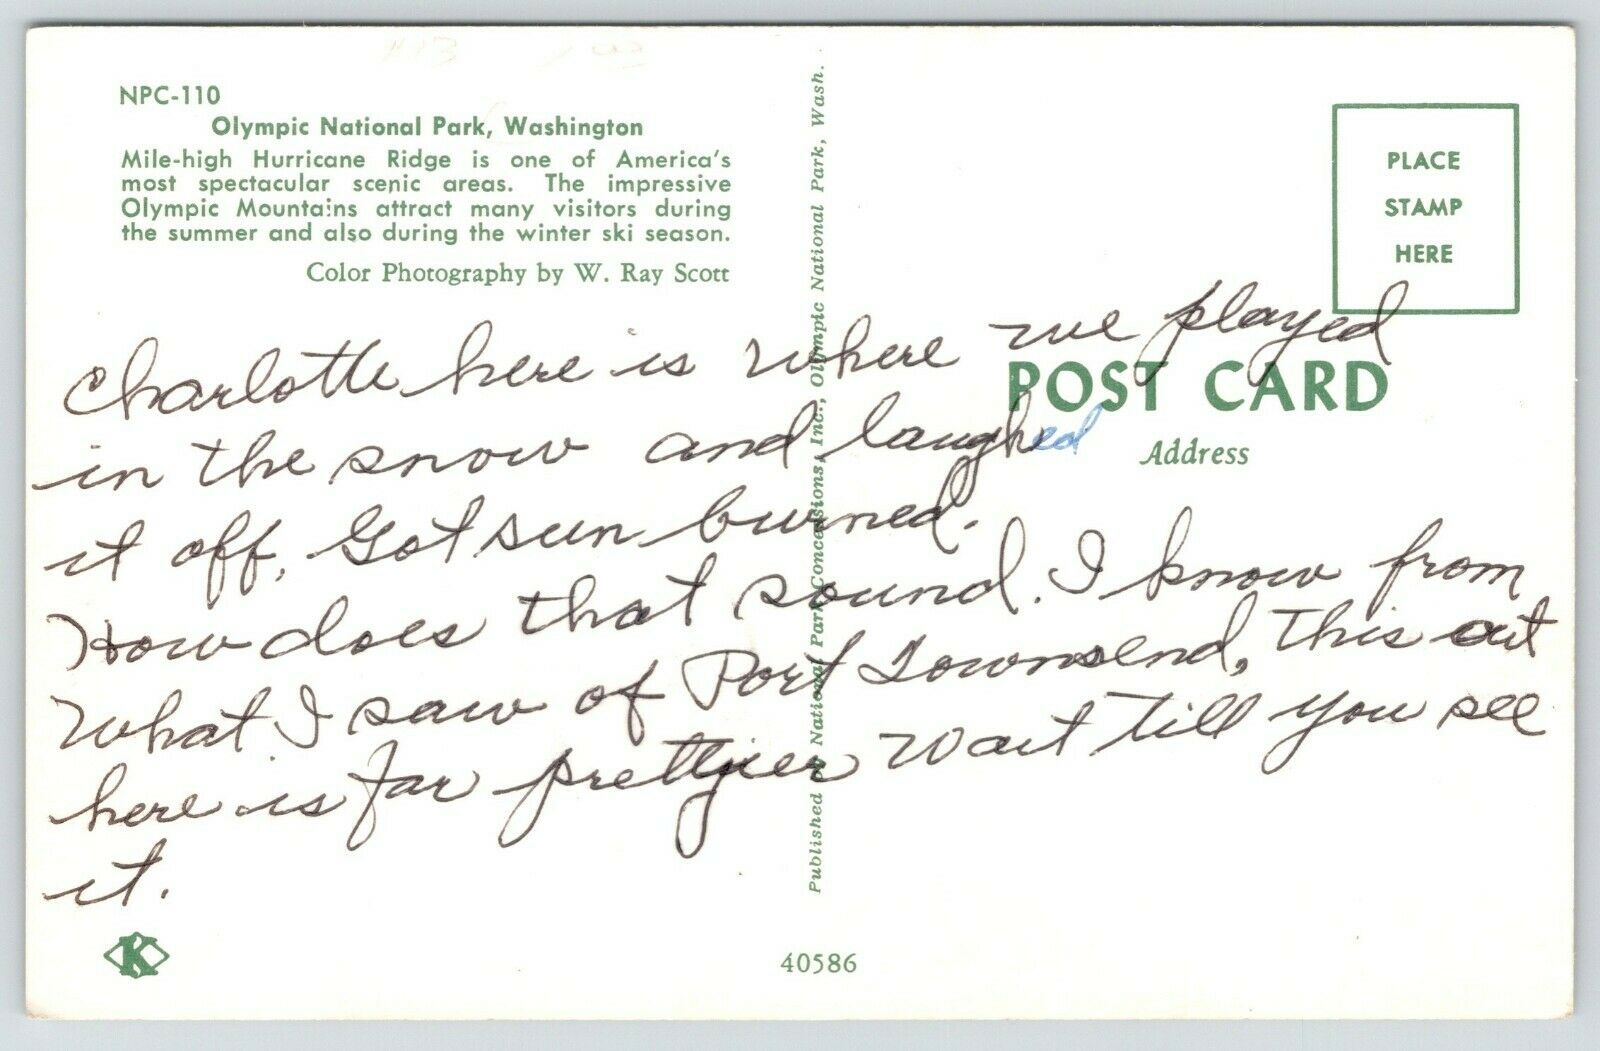 NPC-110
Olympic National Park, Washington
Mile-high Hurricane Ridge is one of America's
most spectacular scenic areas. The impressive
Olympic Mountains attract many visitors during
the summer and also during the winter ski season.
Color Photography by W. Ray Scott
Charlotte here is where we played
in the snow and laughed
it off, Got sun burned.
How does that sound. I know from
what I saw of Port Townsend, this out
here is far prettyier Wait till you see
it.
Published by National Park Concessions, Inc., Olympic National Park, Wash.
PLACE
STAMP
HERE
POST CARD
Address
K
40586